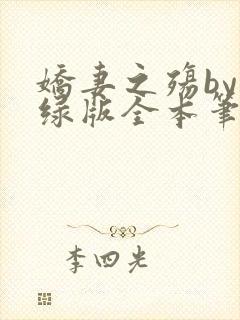 娇妻之殇by
绿版全本笔
李四光